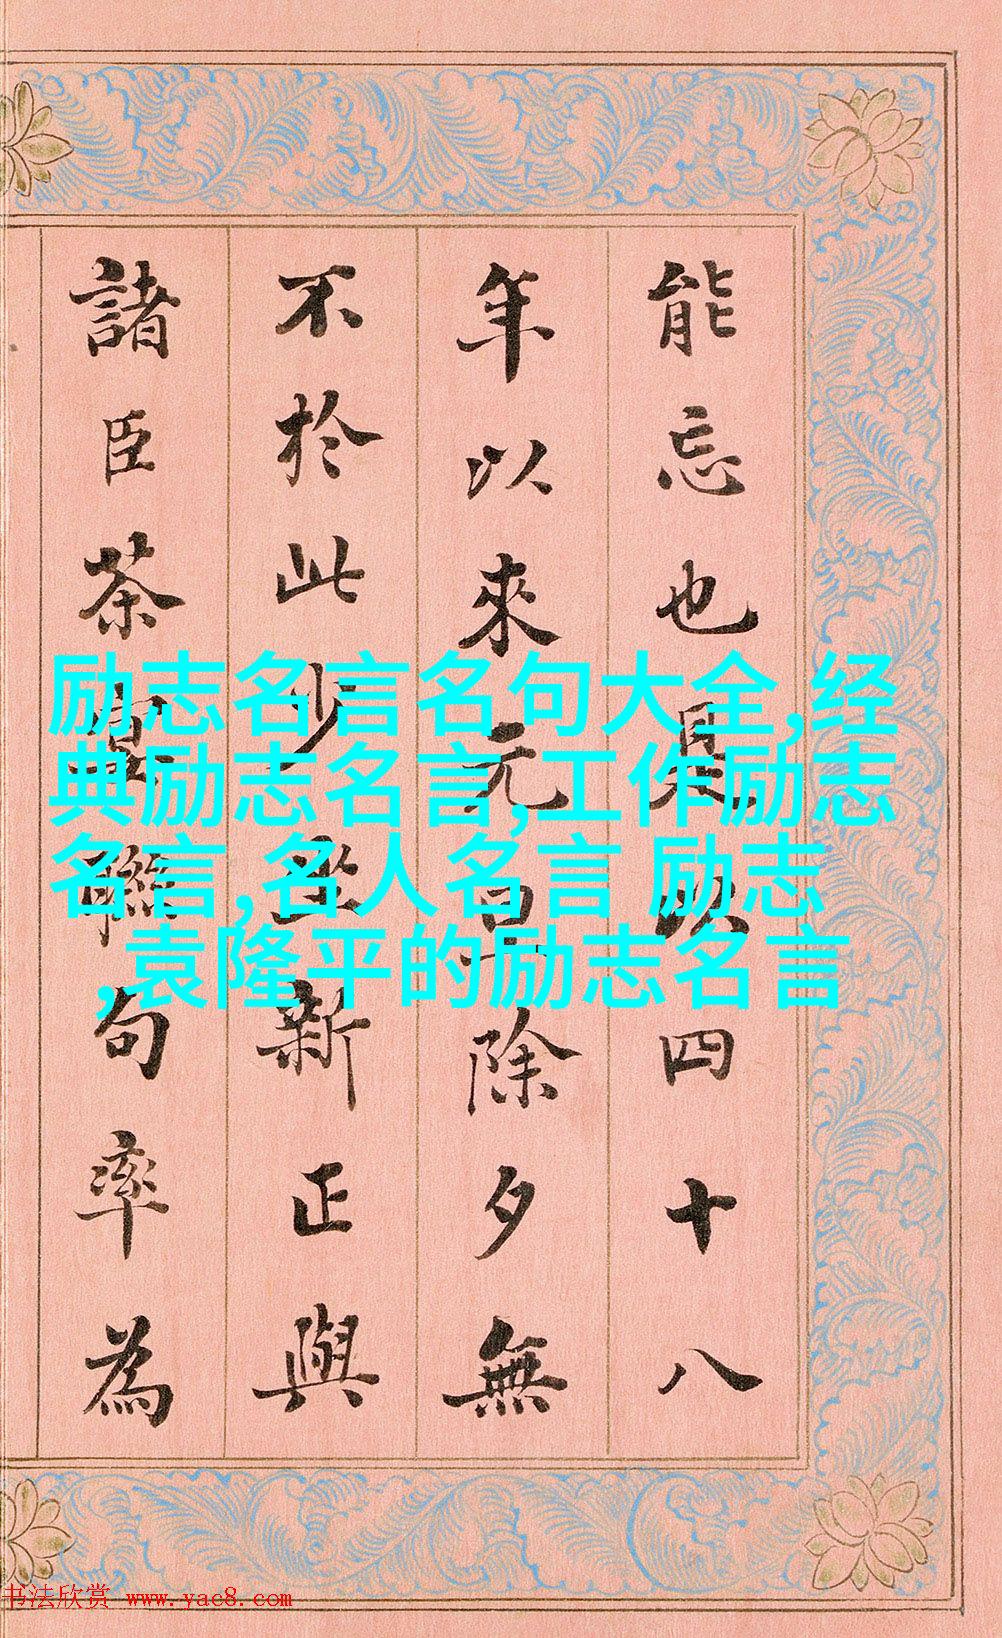 能忘也是以四十八
年以來元旦除夕無
不於此少坐新正與
諸臣茶宴聯句率為
励志名言名句大全,经
典励志名言,工作励志
名言,名人名言 励志
,袁隆平的励志名言
书法欣赏 www.yac8.com